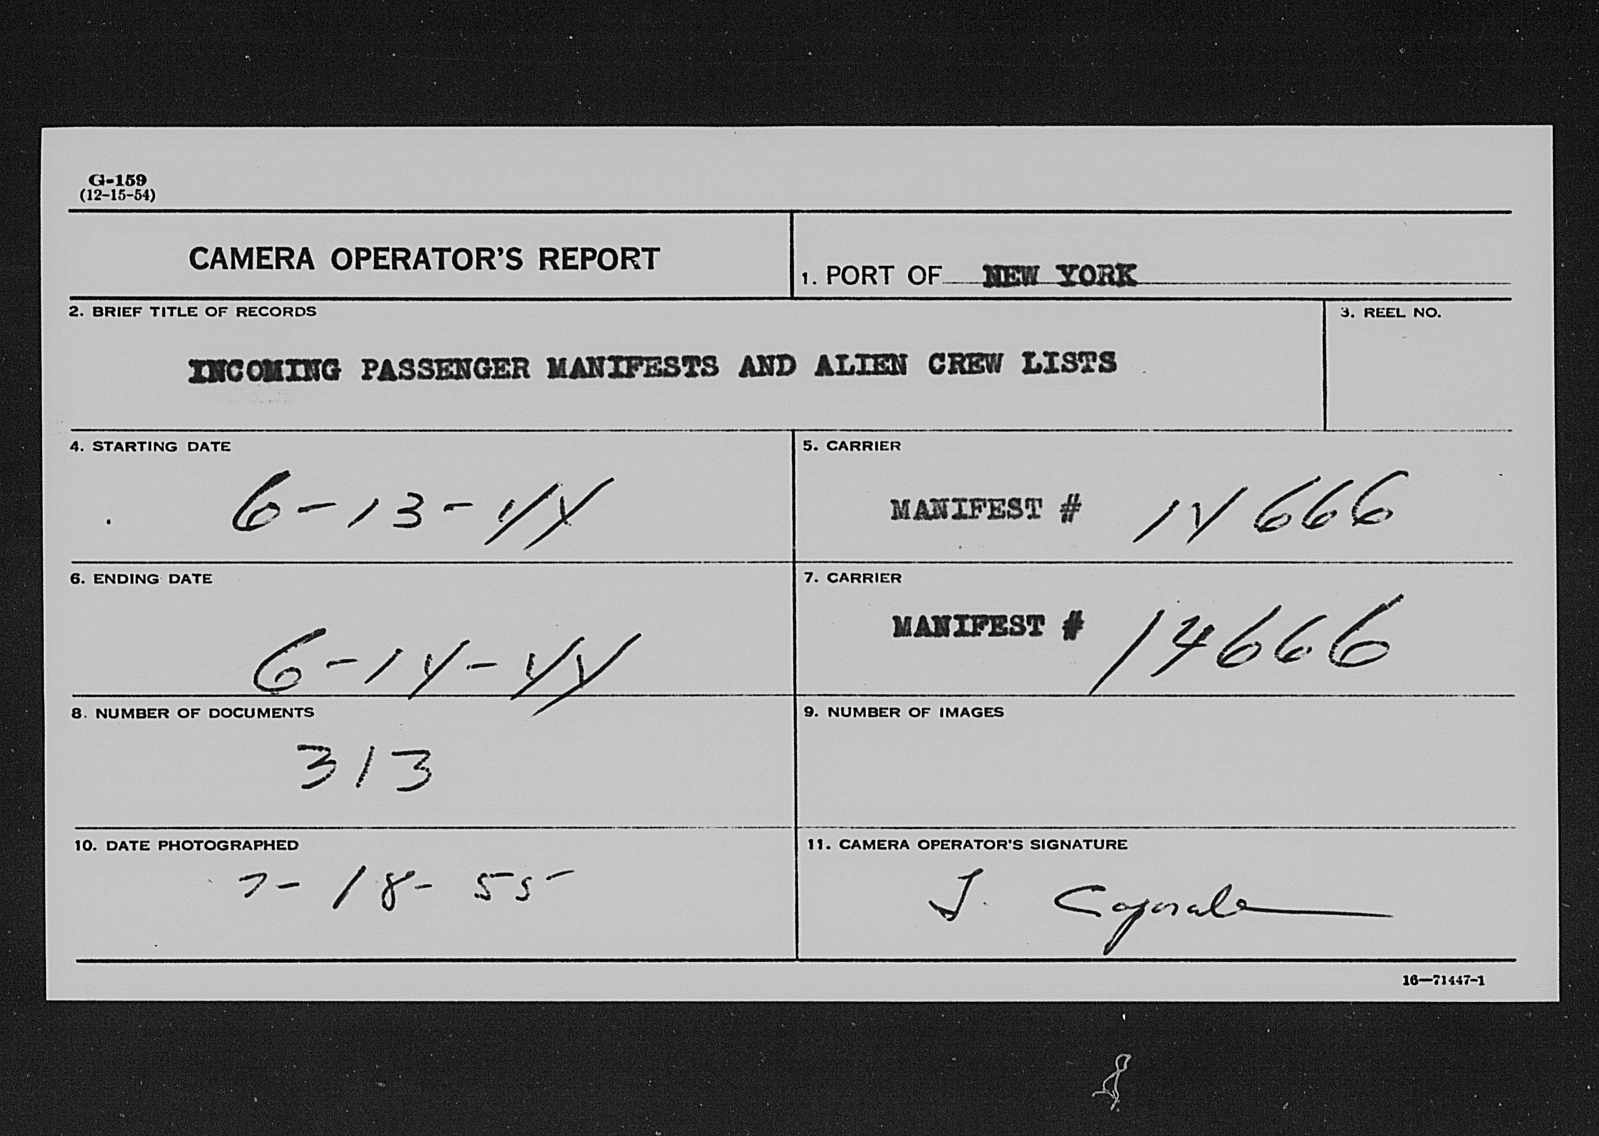 G-159
(12-15-54)
CAMERA OPERATOR'S REPORT
1. PORT OF NEW YORK
2. BRIEF TITLE OF RECORDS
3. REEL NO.
INCOMING PASSENGER MANIFESTS AND ALIEN CREW LISTS
4. STARTING DATE
6-13-44
5. CARRIER
MANIFEST # 14666
6. ENDING DATE
6-14-44
7. CARRIER
MANIFEST # 14666
8. NUMBER OF DOCUMENTS
313
9. NUMBER OF IMAGES
10. DATE PHOTOGRAPHED
7-18-55
11. CAMERA OPERATOR'S SIGNATURE
J.
16—71447-1